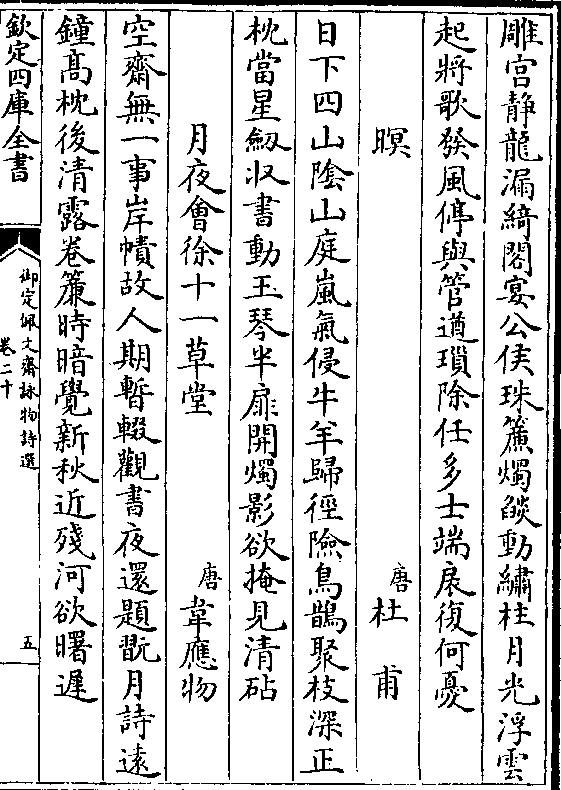 雕宫静龍漏綺閣宴公侯珠簾燭燄動繡柱月光浮雲
起將歌發風停與管遒瑣除任多士端扆復何憂
暝
唐杜甫
日下四山隂山庭嵐氣侵牛羊歸徑險鳥鵲聚枝深正
枕當星劒收書動玉琴半扉開燭影欲掩見清砧
月夜會徐十一草堂
唐韋應物
空齋無一事岸幘故人期暫輟觀書夜還題翫月詩遠
鐘高枕後清露卷簾時暗覺新秋近殘河欲曙遲
欽定四庫全書
御定佩文齋詠物詩選
卷二十
五